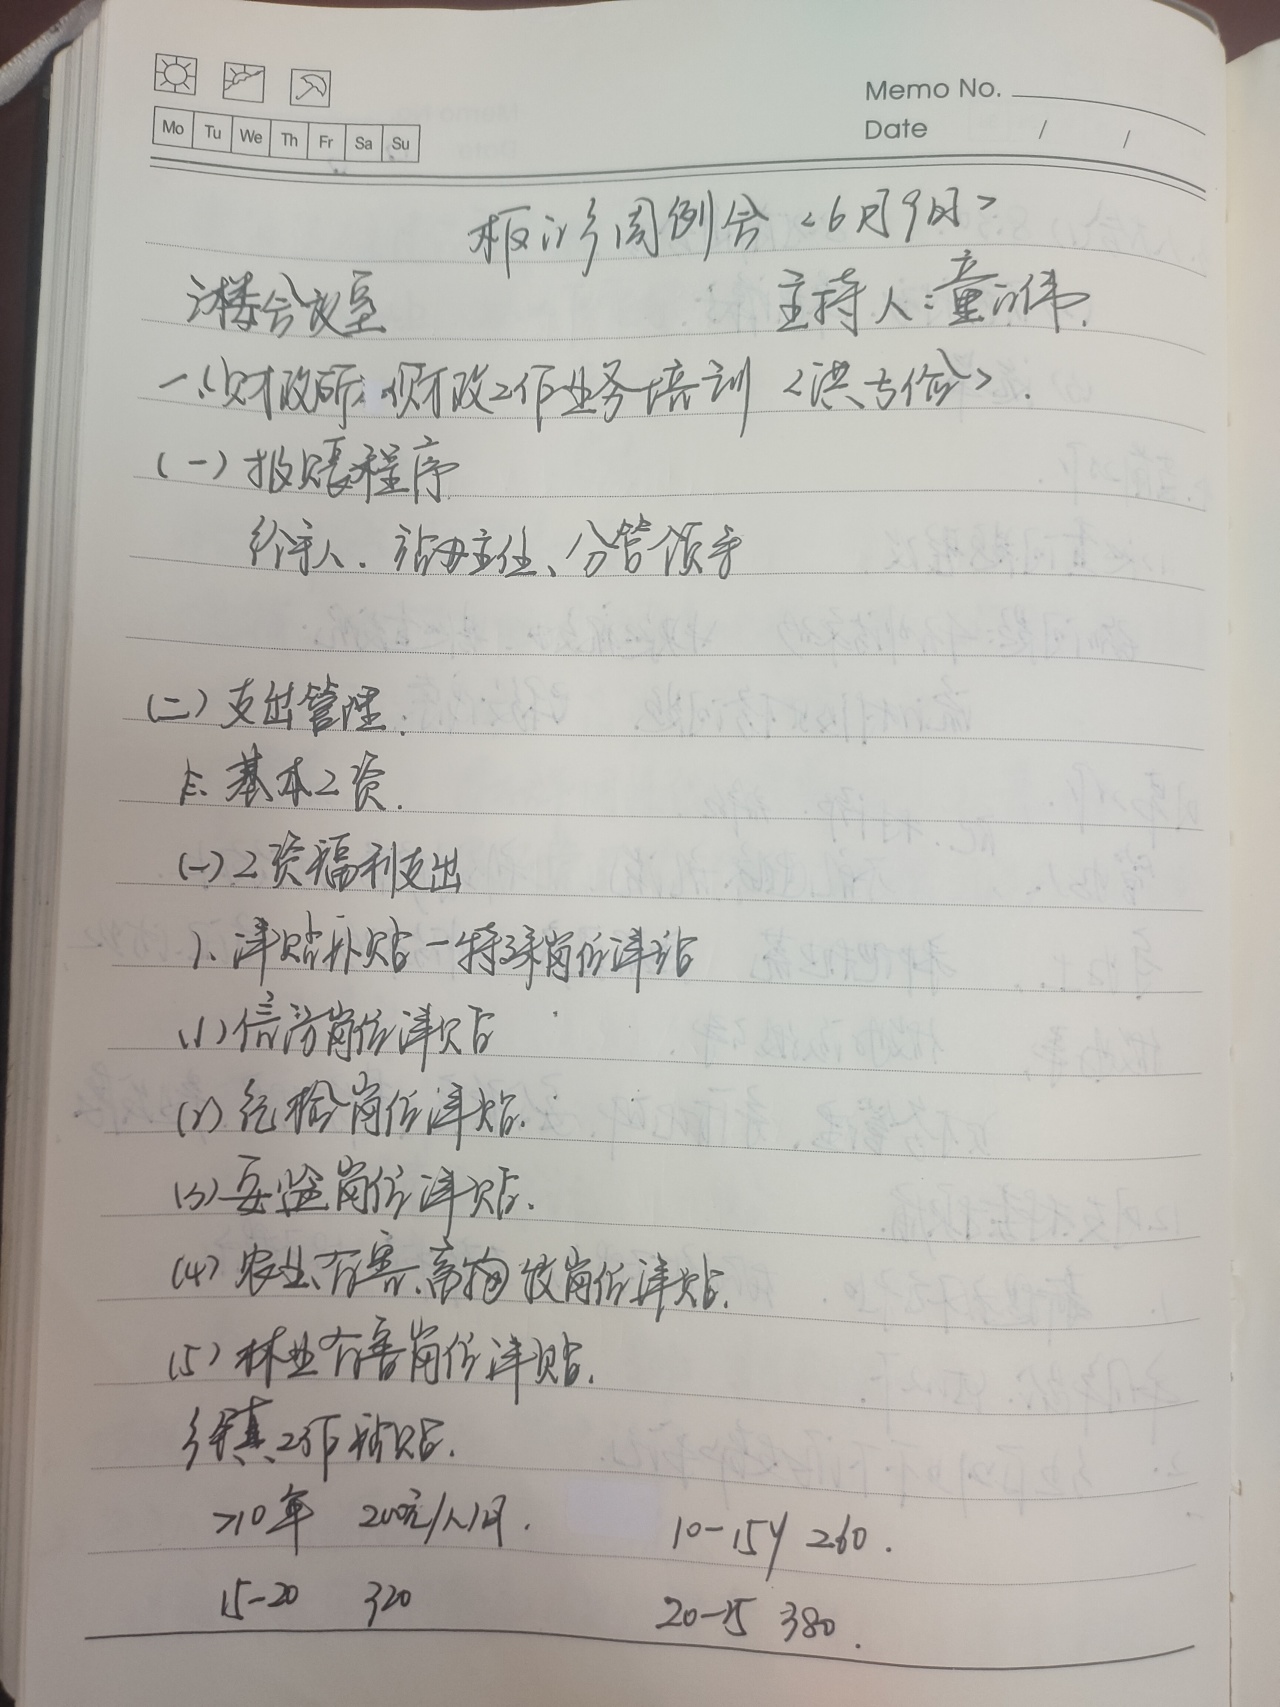 Memo No.
Date / /
Mo Tu We Th Fr Sa Su
板沙乡周例会<6月9日>
楼会议室 主持人:童伟.
一、财政所:财政工作业务培训<洪俭>.
(一)报账程序
经手人.站办主任、分管领导
(二)支出管理.
基本工资.
(一)工资福利支出
1.津贴补贴—特殊岗位津贴
(1)信访岗位津贴
(2)纪检岗位津贴.
(3)安监岗位津贴.
(4)农业有害、畜牧岗位津贴.
(5)林业有害岗位津贴.
乡镇工作补贴.
>10年 200元/人/月. 10-15y 260.
15-20 320 20-25 380.